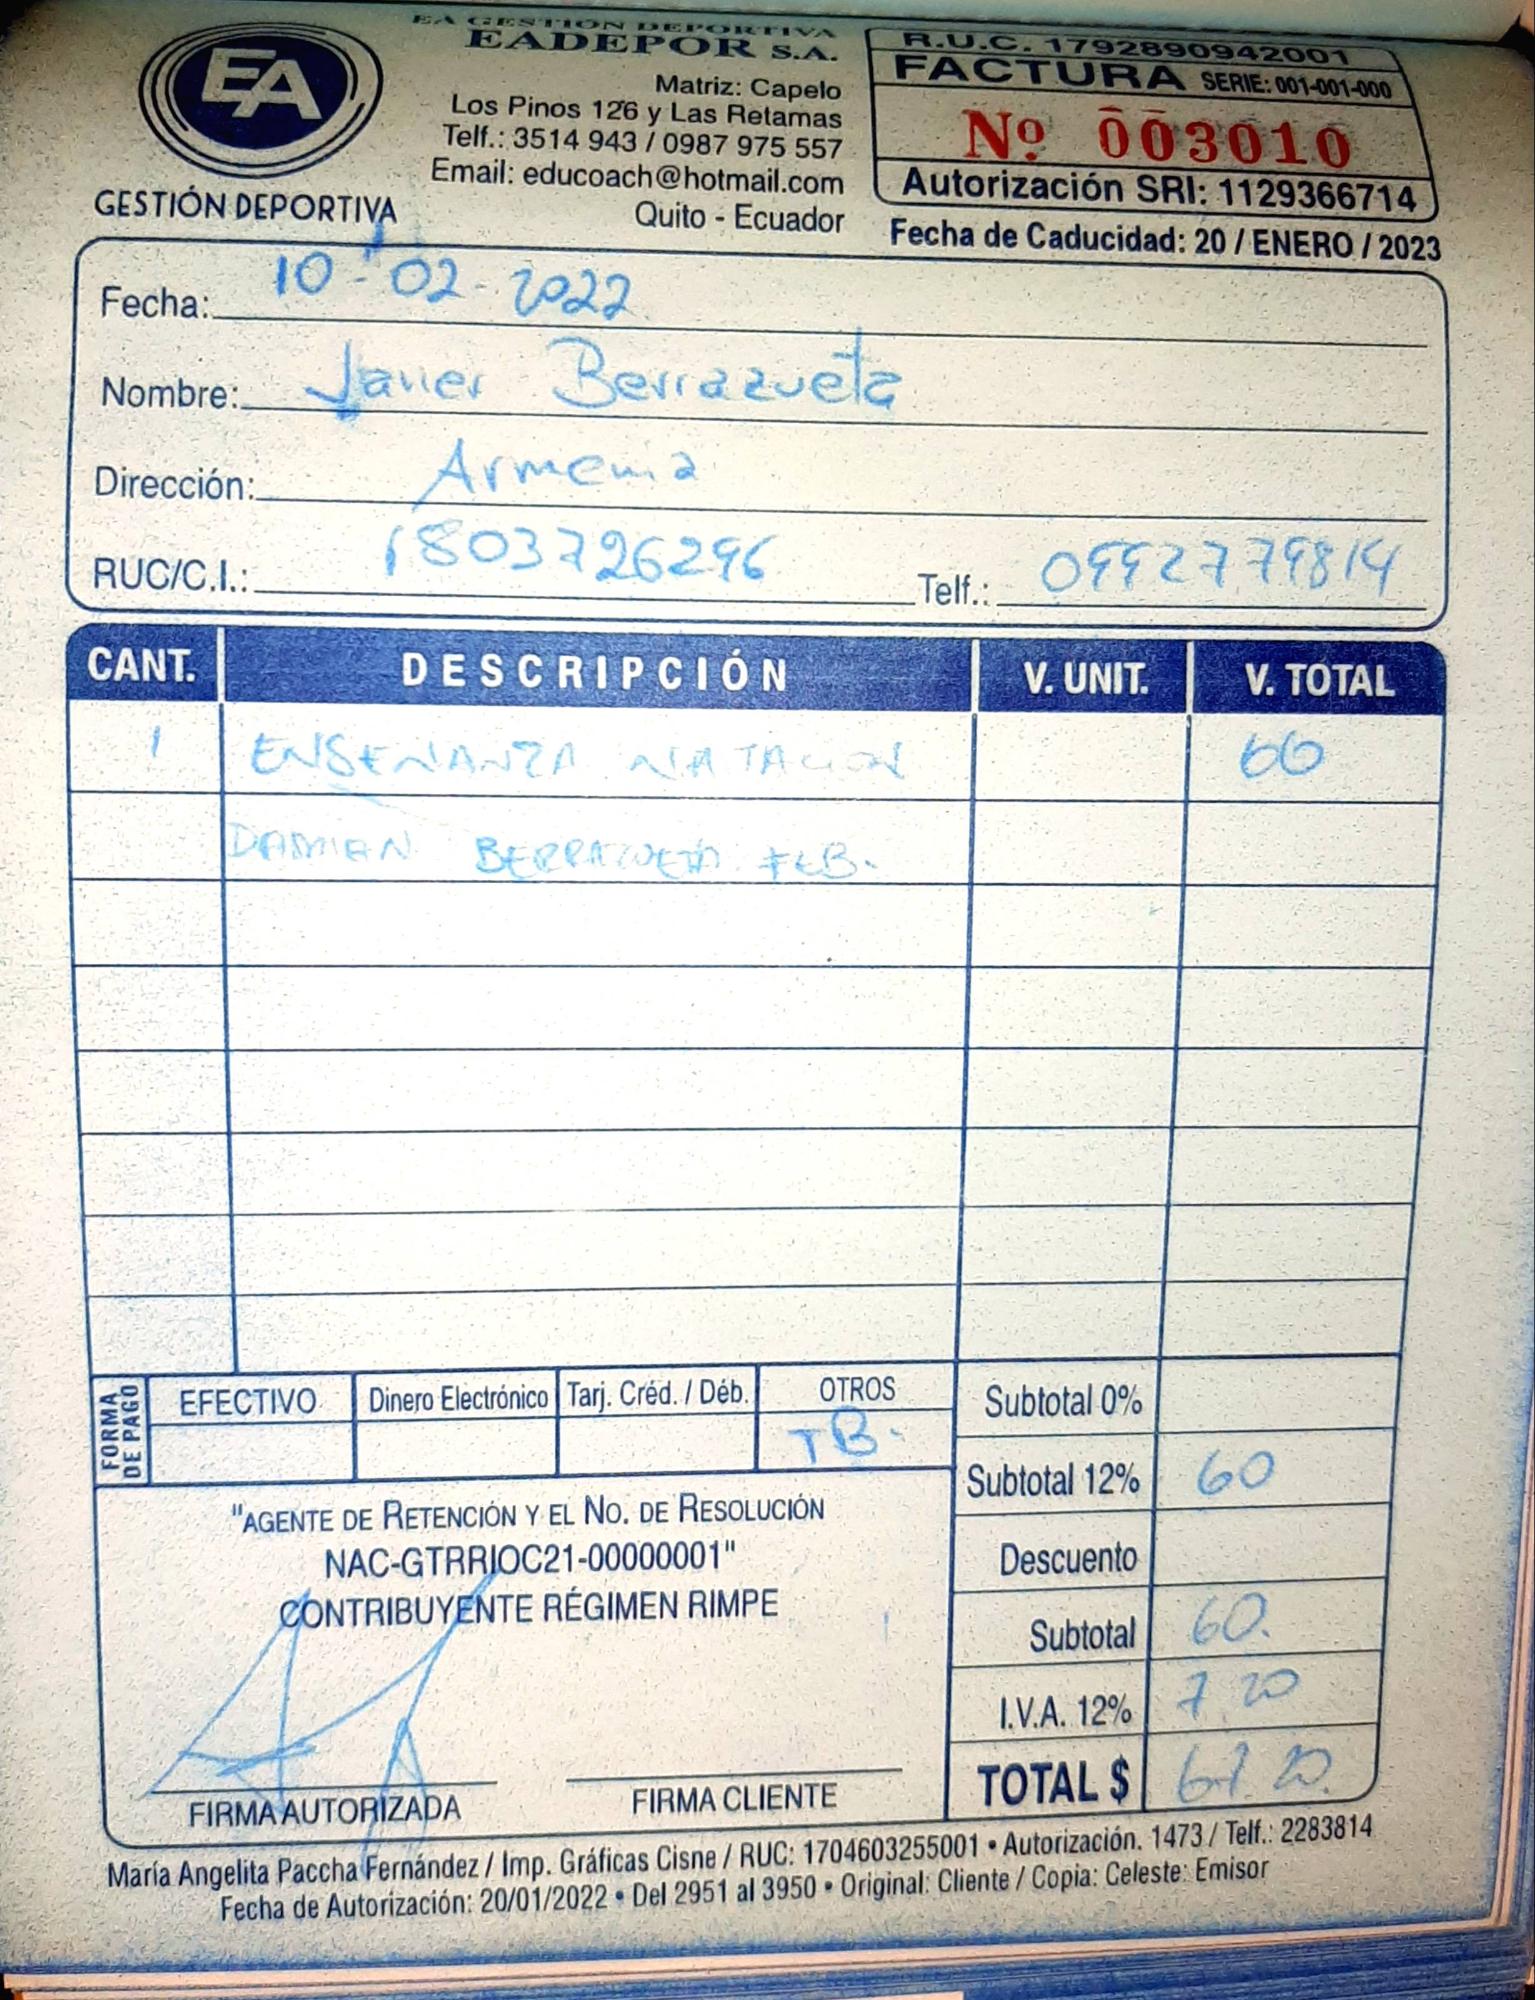 EA GESTIÓN DEPORTIVA
EADEPOR S.A.
Matriz: Capelo
Los Pinos 126 y Las Retamas
Telf.: 3514 943 / 0987 975 557
Email: educoach@hotmail.com
Quito - Ecuador
EA
GESTIÓN DEPORTIVA
R.U.C. 1792890942001
FACTURA SERIE: 001-001-000
Nº 003010
Autorización SRI: 1129366714
Fecha de Caducidad: 20 / ENERO / 2023
Fecha: 10-02-2022
Nombre: Javier Berrazueta
Dirección: Armenia
RUC/C.I.: 1803726296 Telf.: 0992779814
CANT. DESCRIPCIÓN V. UNIT. V. TOTAL
1 ENSENANZA NATACION 60
DAMIAN BERRAZUETA FEB.
FORMA DE PAGO
EFECTIVO Dinero Electrónico Tarj. Créd. / Déb. OTROS
TB.
Subtotal 0%
Subtotal 12% 60
Descuento
Subtotal 60.
I.V.A. 12% 7.20
TOTAL $ 67.20.
"AGENTE DE RETENCIÓN Y EL NO. DE RESOLUCIÓN
NAC-GTRRIOC21-00000001"
CONTRIBUYENTE RÉGIMEN RIMPE
FIRMA AUTORIZADA FIRMA CLIENTE
María Angelita Paccha Fernández / Imp. Gráficas Cisne / RUC: 1704603255001 • Autorización. 1473 / Telf.: 2283814
Fecha de Autorización: 20/01/2022 • Del 2951 al 3950 • Original: Cliente / Copia: Celeste: Emisor